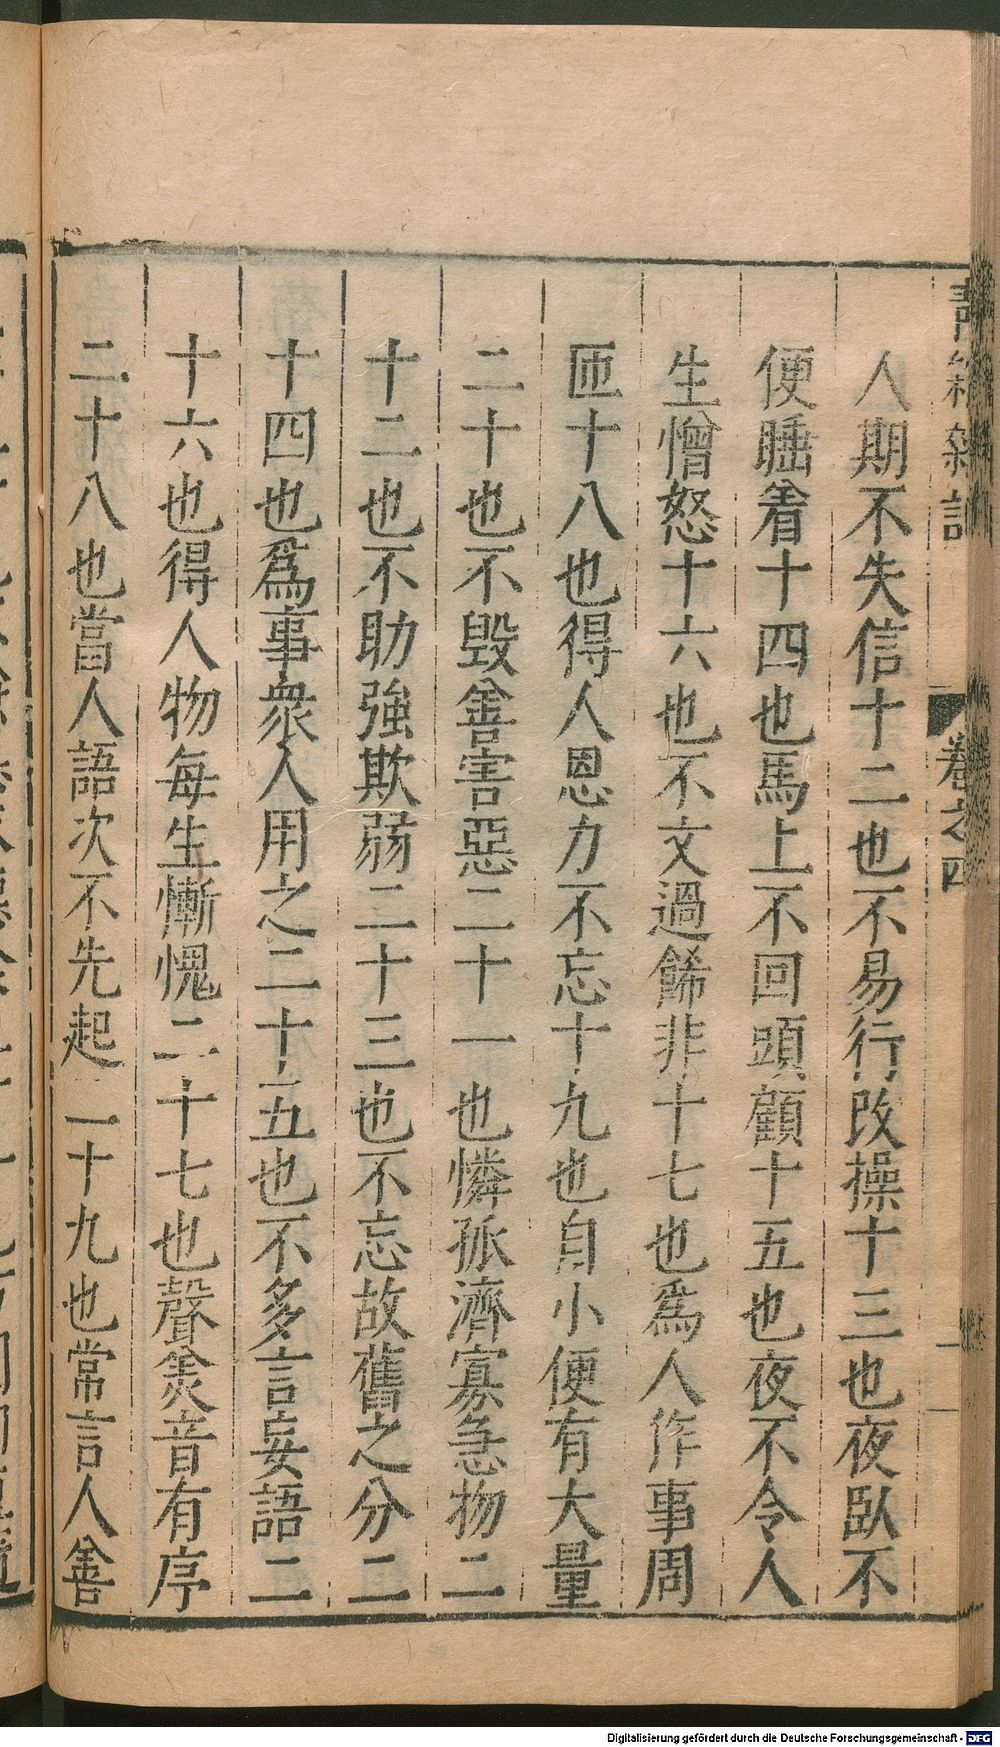 卷之四
人期不失信十二也不易行改操十三也夜臥不
便睡着十四也馬上不回頭顧十五也夜不令人
生憎怒十六也不文過餙非十七也爲人作事周
匝十八也得人恩力不忘十九也自小便有大量
二十也不毀善害惡二十一也憐孤濟寡急物二
十二也不助強欺弱二十三也不忘故舊之分二
十四也爲事衆人用之二十五也不多言妄語二
十六也得人物每生慚愧二十七也聲羙音有序
二十八也當人語次不先起二十九也常言人善
Digitalisierung gefördert durch die Deutsche Forschungsgemeinschaft - DFG